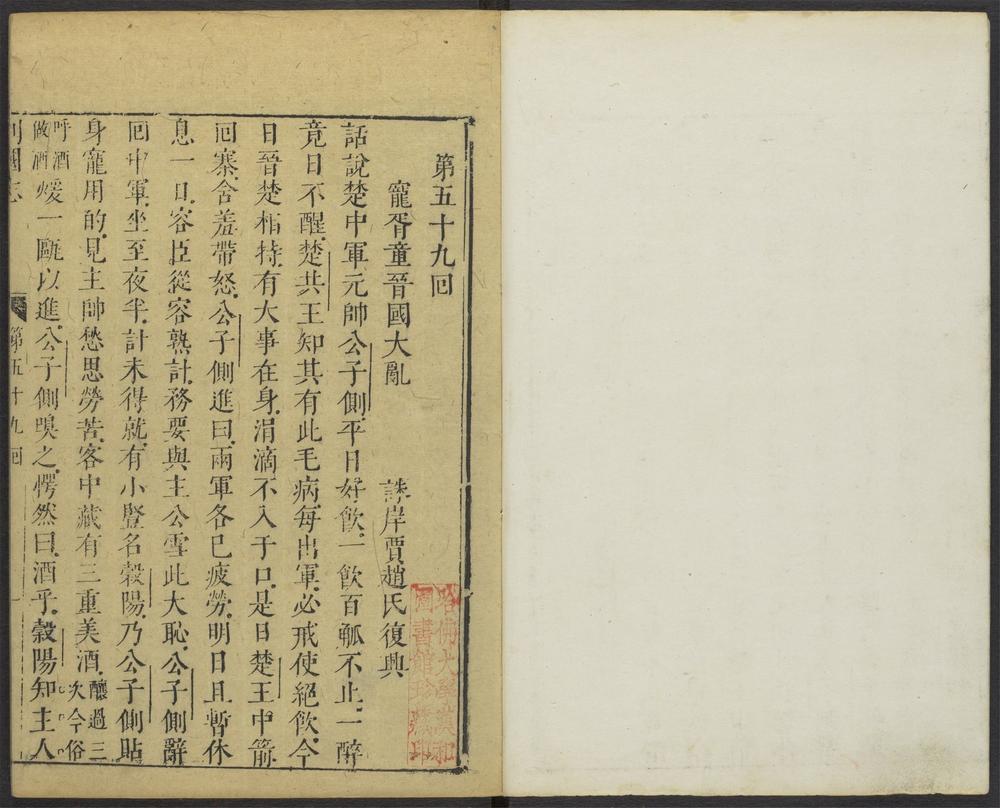 第五十九回
寵胥童晉國大亂　誅岸賈趙氏復興
話說楚中軍元帥公子側平日好飲一飲百觚不止一醉
竟日不醒楚共王知其有此毛病每出軍必戒使絕飲今
日晉楚相持有大事在身涓滴不入于口是日楚王中箭
回寨含羞帶怒公子側進曰兩軍各已疲勞明日且暫休
息一日容臣從容熟計務要與主公雪此大恥公子側辭
回中軍坐至夜半計未得就有小豎名穀陽乃公子側貼
身寵用的見主帥愁思勞苦客中藏有三重美酒釀過三次今俗
呼酒做酒煖一甌以進公子側嗅之愕然曰酒乎穀陽知主人
列國志　第五十九回　一
哈佛大學漢和
圖書館珍藏印